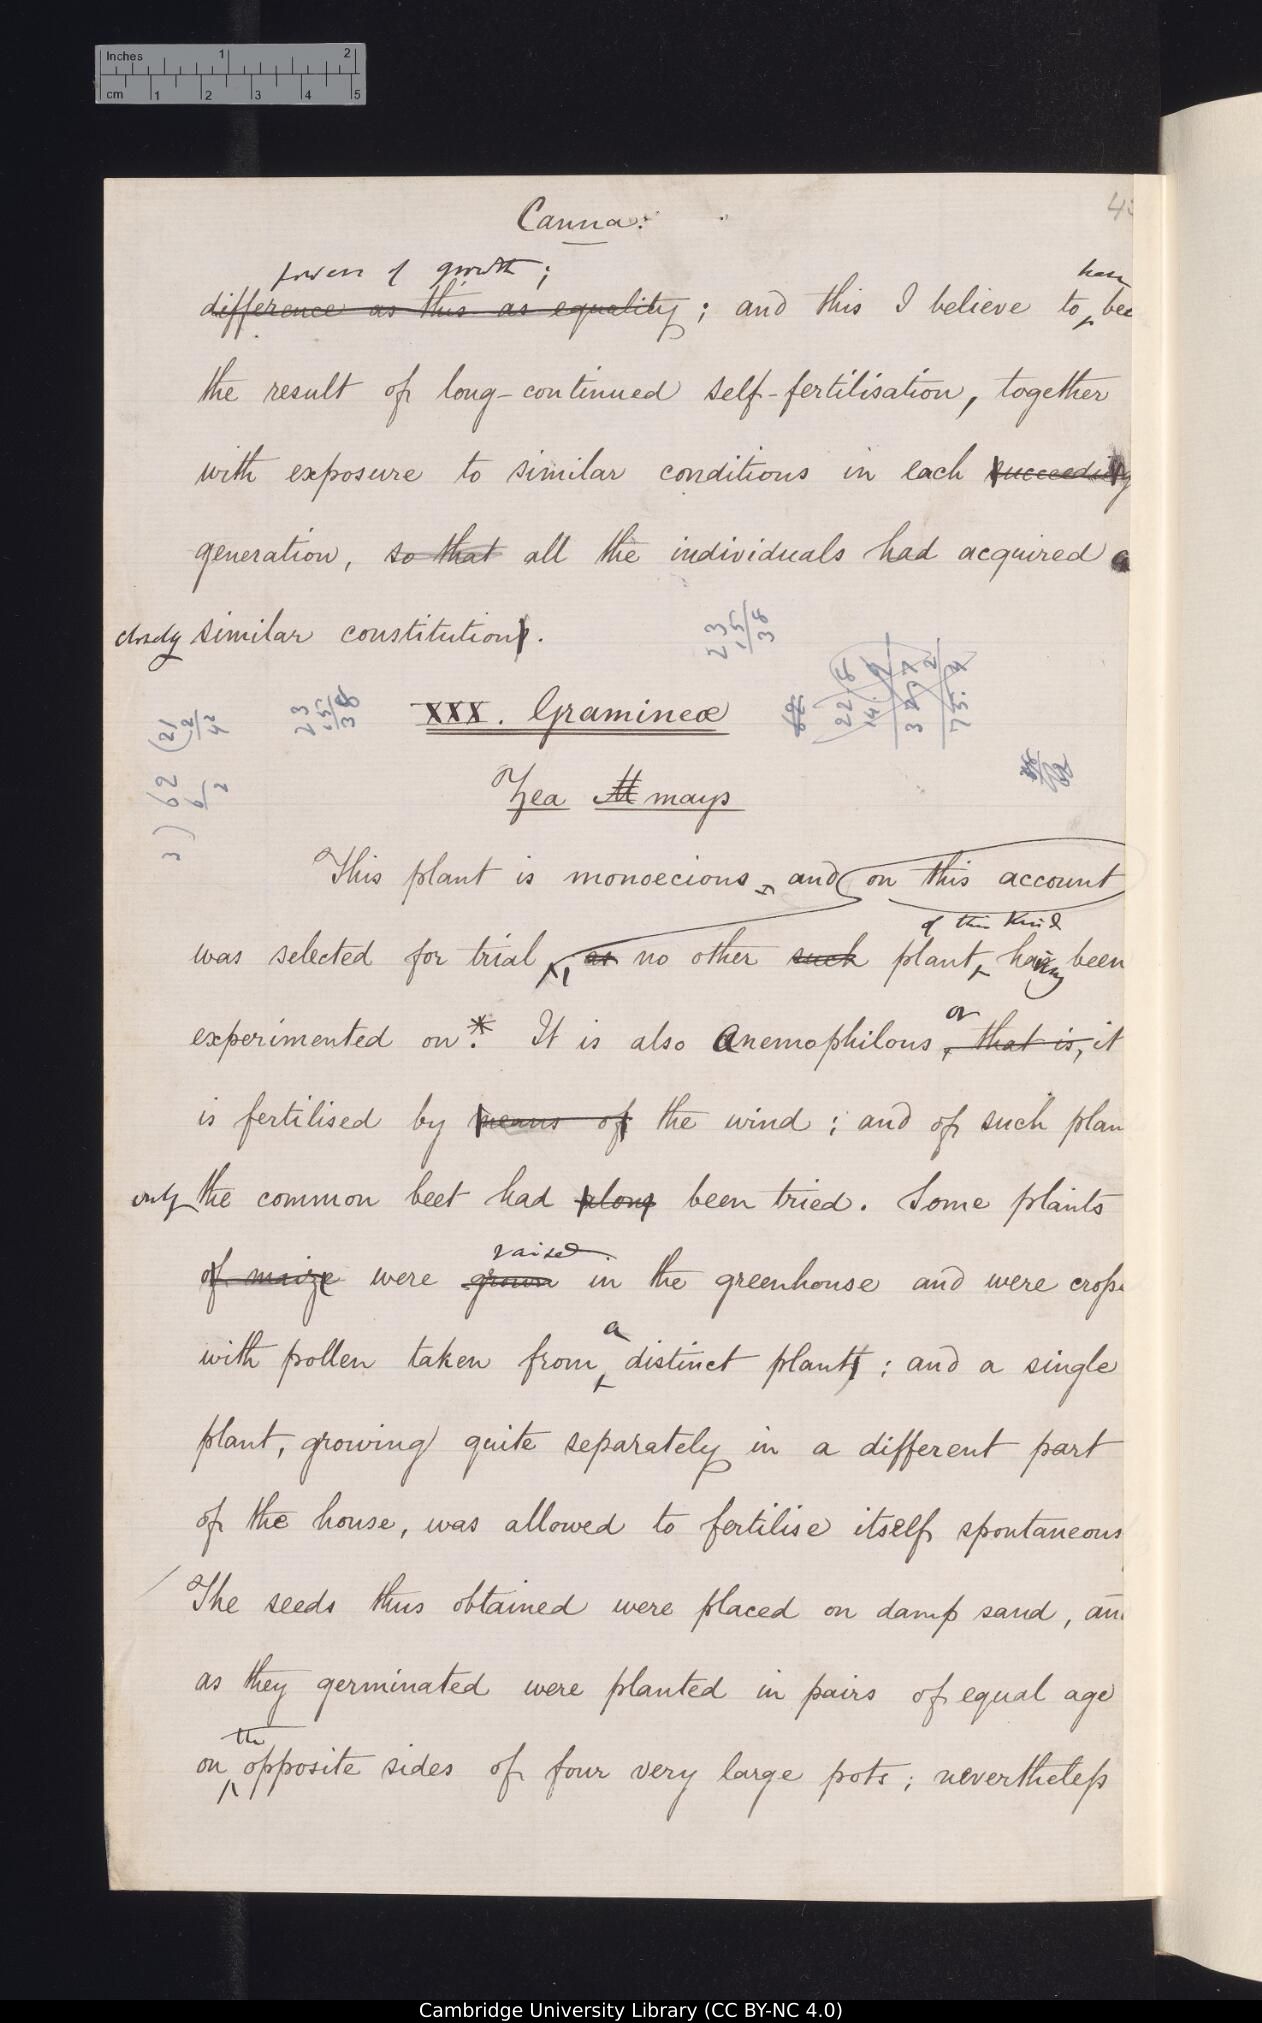 Inches 1 2
cm 1 2 3 4 5
Canna.
4
powers of growth;
have
difference as this as equality; and this I believe to bee
the result of long-continued self-fertilisation, together
with exposure to similar conditions in each succeeding
generation, so that all the individuals had acquired a
closely similar constitution.
23
15
38
23
15
38
XXX. Gramineæ
3) 62 (21
6 2
2 42
Zea M mays
This plant is monoecious, and on this account
of this kind
was selected for trial, as no other such plant having been
or
experimented on.* It is also Anemophilous, that is, it
is fertilised by means of the wind; and of such plan
only the common beet had alone been tried. Some plants
raised
of maize were grown in the greenhouse and were cross
a
with pollen taken from distinct plants; and a single
plant, growing quite separately in a different part
of the house, was allowed to fertilise itself spontaneous
The seeds thus obtained were placed on damp sand, an
as they germinated were planted in pairs of equal age
the
on opposite sides of four very large pots; nevertheless
Cambridge University Library (CC BY-NC 4.0)